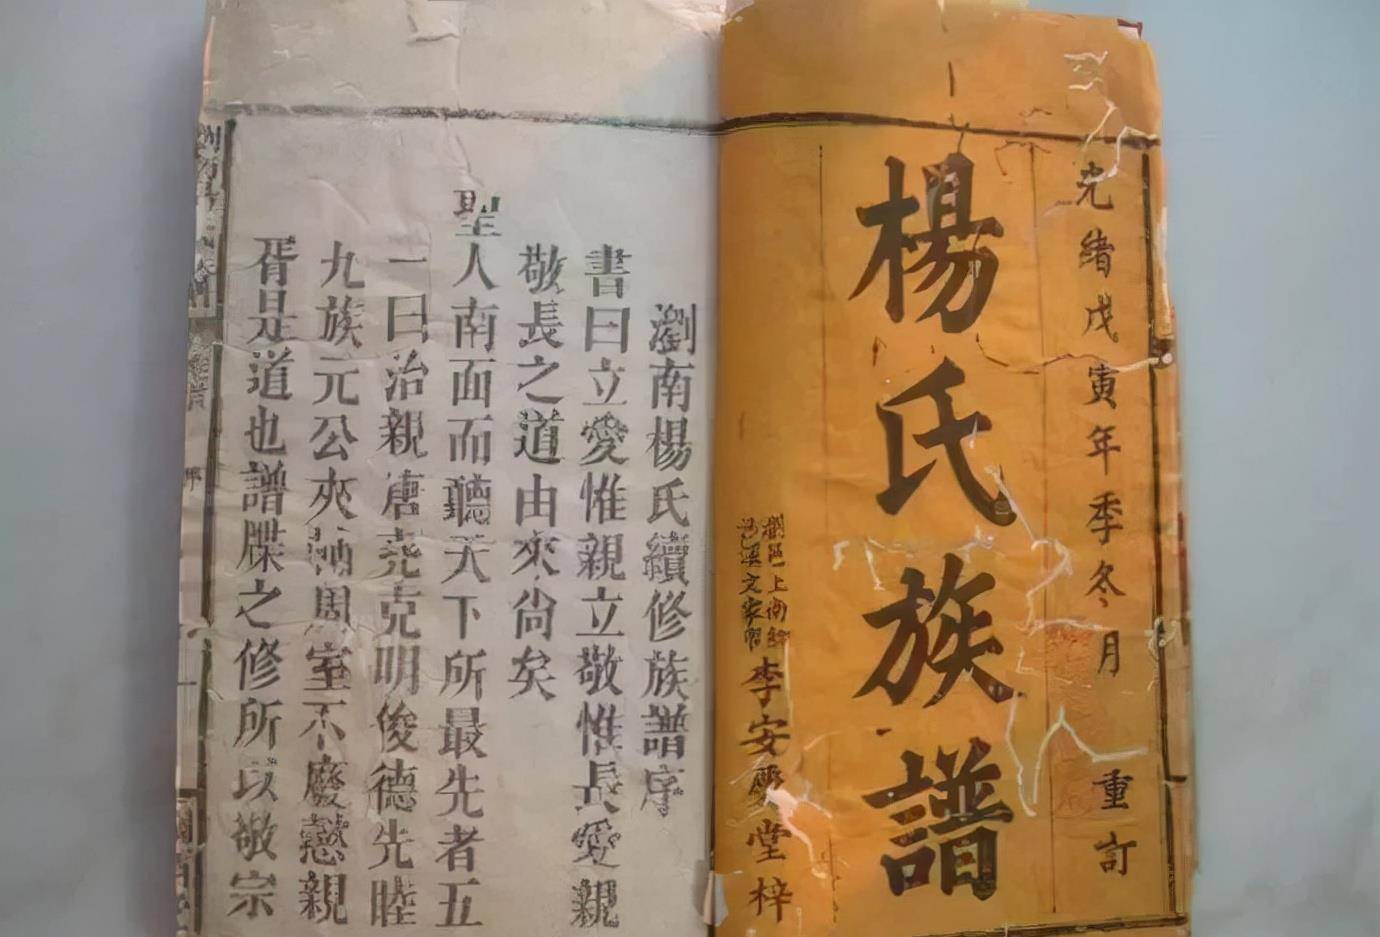 光緒戊寅年季冬月 重訂
楊氏族譜
瀏邑上南
文家
李安慶堂梓
瀏南楊氏續修族譜序
書曰立愛惟親立敬惟長愛親
敬長之道由來尚矣
聖人南面而聽天下所最先者五
一曰治親唐堯克明俊德先睦
九族元公夾周室不廢懿親
胥是道也譜牒之修所以敬宗